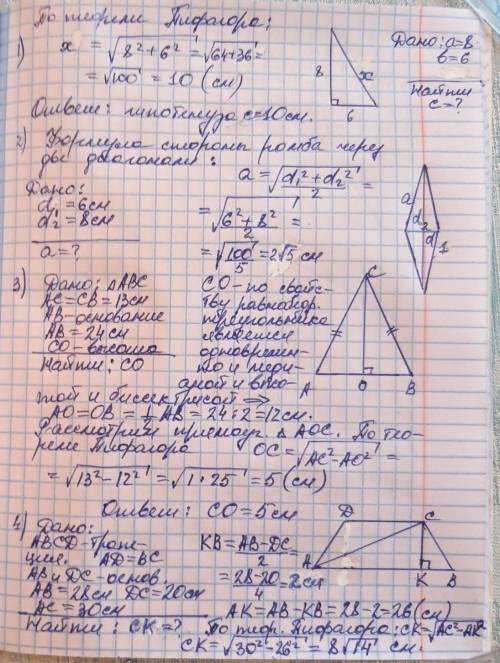 По теореме Пифагора:
1) x = √8²+6² = √64+36 =
= √100 = 10 (см)
Ответ: гипотенуза c=10см.
8
x
6
Дано: a=8
b=6
Найти
c=?
2) Формула стороны ромба через
две диагонали:
a = √d₁²+d₂² / 2 =
Дано:
d₁ = 6см
d₂ = 8см
a = ?
= √6²+8² / 2 =
= √100/5 = 2√5 см
a
d₂
d
1
3) Дано: △ABC
AC=CB=13см
AB-основание
AB=24см
CO-высота
Найти: CO
CO-по свойс-
тву равнобедр.
треугольника
является
одновремен-
но и меди-
аной и высо
той и биссектрисой ⇒
C
A
O
B
AO=OB = 1/2 AB = 24:2=12см.
Рассмотрим прямоуг. △AOC. По тео-
реме Пифагора OC=√AC²-AO² =
= √13²-12² = √1·25 = 5 (см)
Ответ: CO=5см
4) Дано:
ABCD-трапе-
ция. AD=BC
AB и DC-основ.
AB=28см DC=20см
AC=30см
Найти: CK=?
KB = AB-DC / 2 =
= 28-20 / 4 = 2см
D
C
A
K
B
AK=AB-KB=28-2=26(см)
По теор. Пифагора: CK=√AC²-AK²
CK=√30²-26² = 8√14 см.